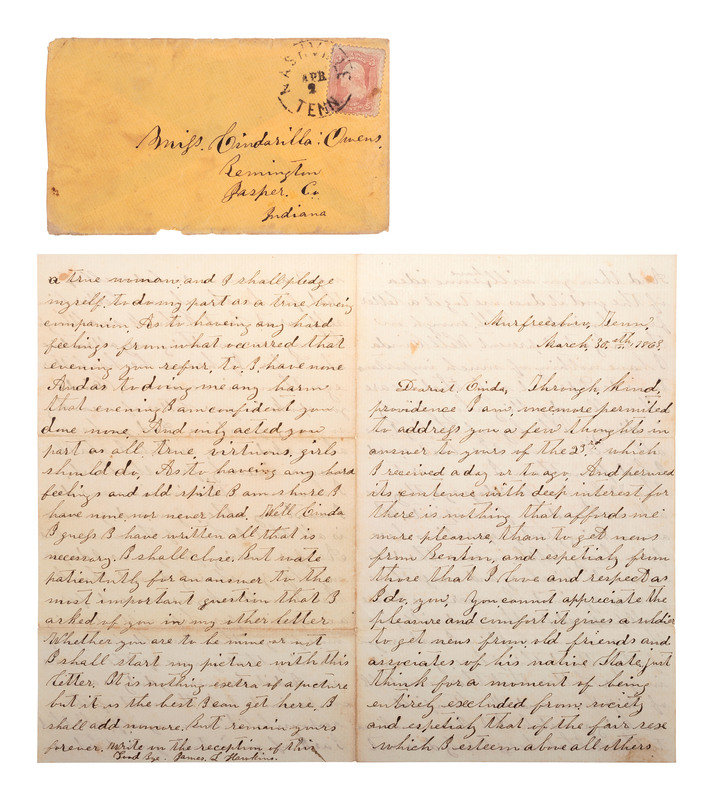 NASHVILLE
APR
2
TENN
Miss. Cindarilla. Owens.
Remington
Jasper. Co
Indiana
a true woman, and I shall pledge
myself. to do my part as a true loveing
companion. As to haveing any hard
feelings from what occurred that
evening you refur, to, I have none
And as to doing me any harm
that evening I am confident you
done none. And only acted your
part as all true, virtuous, girls
should do. As to haveing any hard
feelings and old spite I am shure I
have none, nor never had. Well Cinda
I guess I have written all that is
necessary. I shall close. But wate
patientntly for an answer to the
most important question that I
asked of you in my other letter
Whether you are to be mine or not
I shall start my picture with this
letter. It is nothing extra of a picture
but it is the best I can get here. I
shall add nomore. But remain yours
forever. Write on the reception of this
Good bye. James. L. Hawkins.
Murfreesboro, Tenn.
March, 30.th, 1863.
Dearist. Cinda, Through, kind,
providence I am, oncemore permited
to address you a few thoughts in
answer to yours of the 23rd which
I received a day or to ago. And perused
its contence with deep interest for
there is nothing that affords me
more pleasure, than to get news
from Benton, and espetialy from
those that I love and respect as
I do, you. You cannot appreciate the
pleasure and comfort it gives a soldier
to get news from old friends and
associates of his native State, just
think for a moment of being
entirely excluded from society
and espetialy that of the fair sex
which I esteem above all others